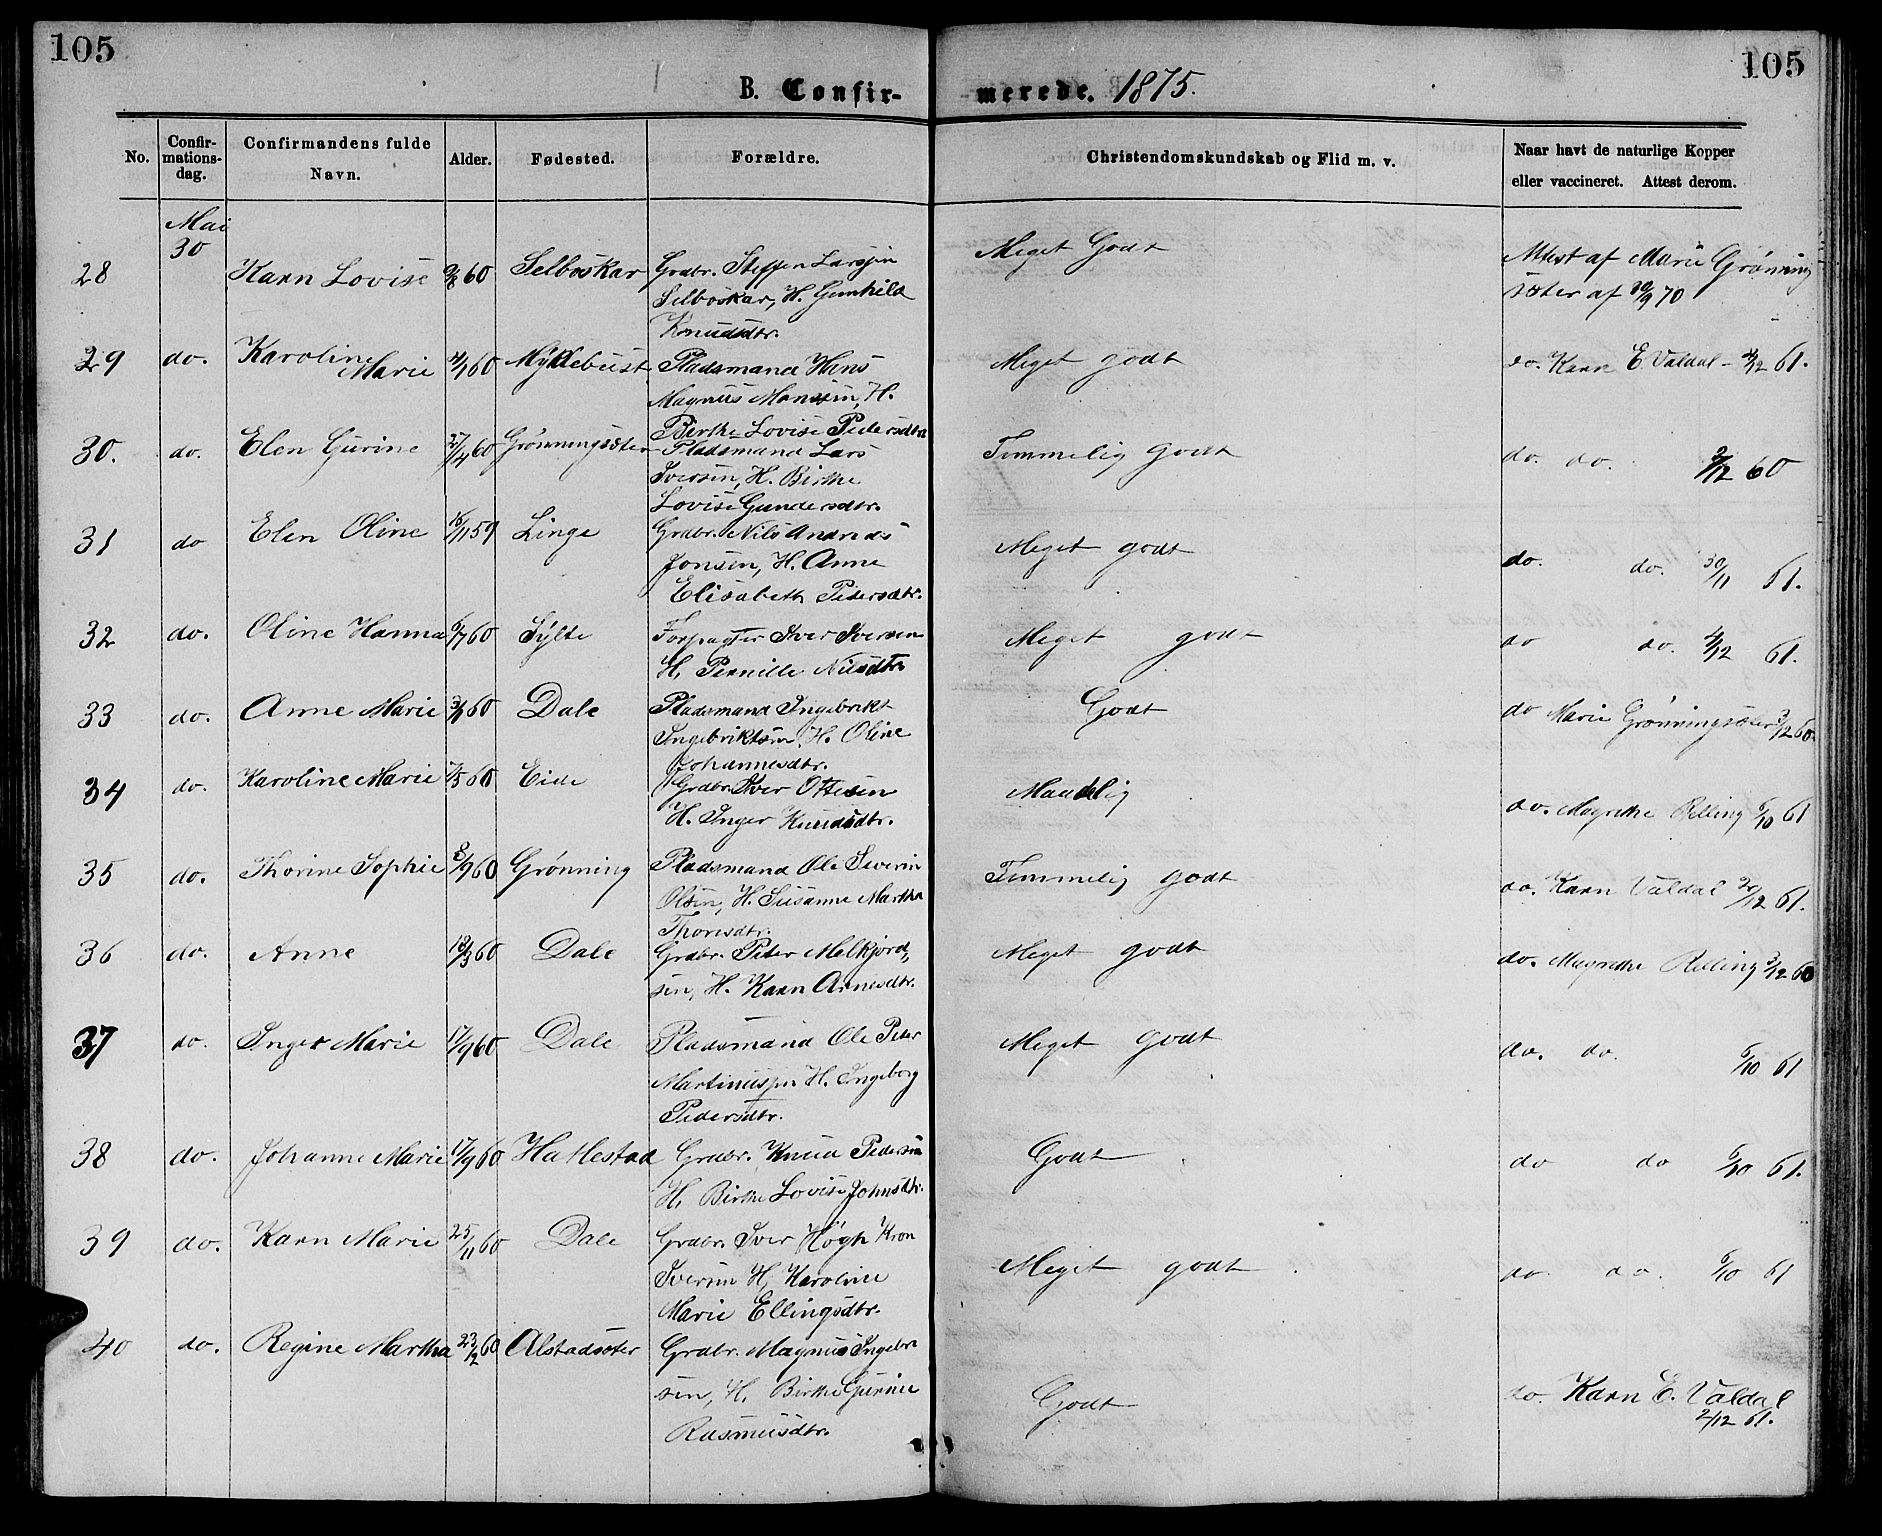 105
105
B. Confir-
merede. 1875.
No.
Confir-
mations-
dag.
Confirmandens fulde
Navn.
Alder.
Fødested.
Forældre.
Christendomskundskab og Flid m. v.
Naar havt de naturlige Kopper
eller vaccineret. Attest derom.
Mai
30
28 Karn Lovise 60 Selboskar Grdbr. Steffen Larsen
Selboskar, H. Gunhild
Knudsdtr.
Meget Godt
Attest af Marie Grønning
sæter af 30/9 70
29 do. Karoline
Marie 60 Myklebust Pladsmand Hans
Magnus Monsen, H.
Birthe Lovise Pedersdtr
Meget godt
do. Karn E. Valdal - 61.
30. do. Elen Gurine 27/4 60 Grønningsæter Pladsmand Lars
Iversen, H. Birthe
Lovise Gundersdtr.
Temmelig Godt
do. do. 2/12 60
31 do Elen Oline 16/11 59 Linge Grdbr. Nils Andreas
Jonsen, H. Anne
Elisabeth Pedersdtr.
Meget godt
do. do. 30/11 61.
32 do. Oline Hanna 6/7 60 Sylte Forpagter Iver Iversen
H. Pernille Nilsdtr.
Meget godt
do do. 61.
33 do. Anne Marie 60 Dale Pladsmand Ingebrikt
Ingebriktsen, H. Oline
Johannesdtr.
Godt
do Marie Grønningsæter 2/12 60.
34 do. Karoline Marie 60 Eide Grdbr. Iver Ottesen
H. Inger Knudsdtr.
Maadelig
do. Magrethe Relling 6/10 61
35 do. Thorine Sophie 60 Grønning Pladsmand Ole Severin
Olsen, H. Susanne Martha
Thoresdtr.
Temmelig godt
do. Karn Valdal 61.
36 do. Anne 18/3 60 Dale Grdbr. Peter Melkjord,
sen, H. Karn Arnesdtr.
Meget godt
do. Magrethe Relling 3/12 60
37 do. Inger Marie 17/9 60 Dale Pladsmand Ole Peter
Martinussen H. Ingeborg
Pedersdtr.
Meget godt
do. do. 6/10 61
38 do. Johanne Marie 17/9 60 Hatlestad Grdbr. Knud Pedersen
H. Birthe Lovise Johnsdtr.
Godt
do do 6/10 61.
39 do. Karn Marie 25/11 60 Dale Grdbr. Iver Høgh Kron
Iversen H. Karoline
Marie Ellingsdtr.
Meget godt
do. do. 6/10 61
40 do. Regine Martha 23/2 60 Alstadsæter Grdbr. Magnus Ingebr
sen, H. Birthe Gurine
Rasmusdtr.
Godt
do. Karn E. Valdal
2/12 61.